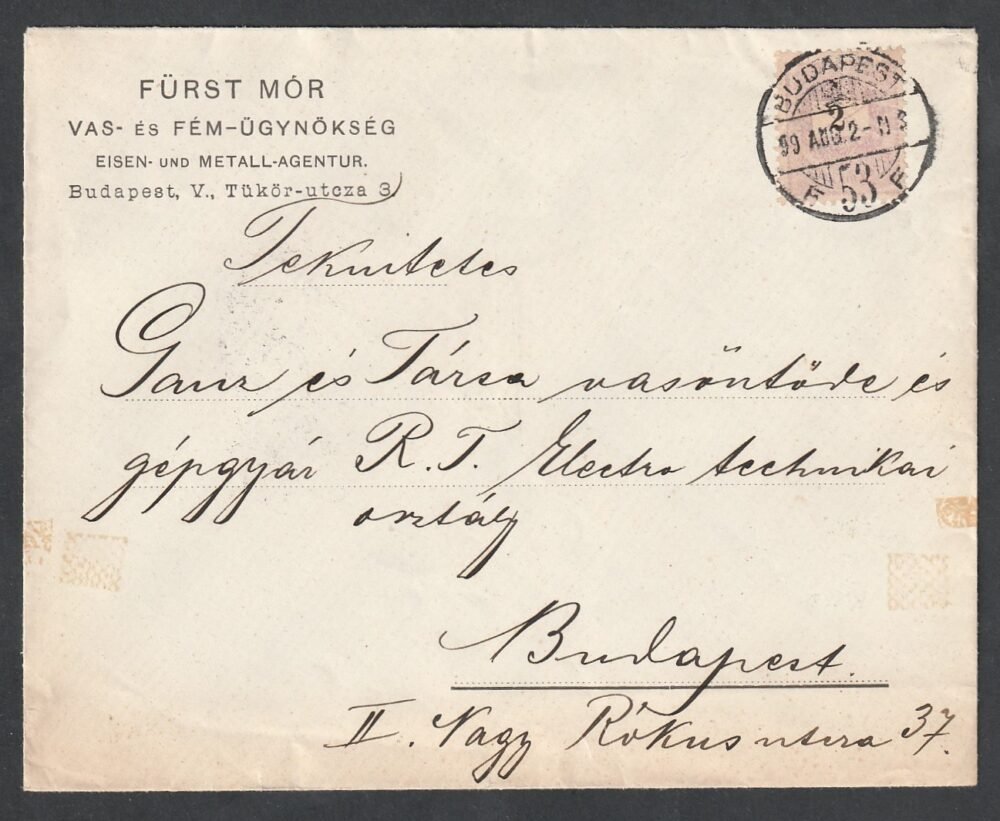 FÜRST MÓR
VAS- ÉS FÉM-ÜGYNÖKSÉG
EISEN- UND METALL-AGENTUR.
Budapest, V., Tükör-utcza 3
BUDAPEST
2
99 AUG. 2 - N 3
53
Tekintetes
Ganz és Társa vasöntöde és
gépgyár R. T. Electro technikai
osztály
Budapest.
II. Nagy Rókus utcza 37.